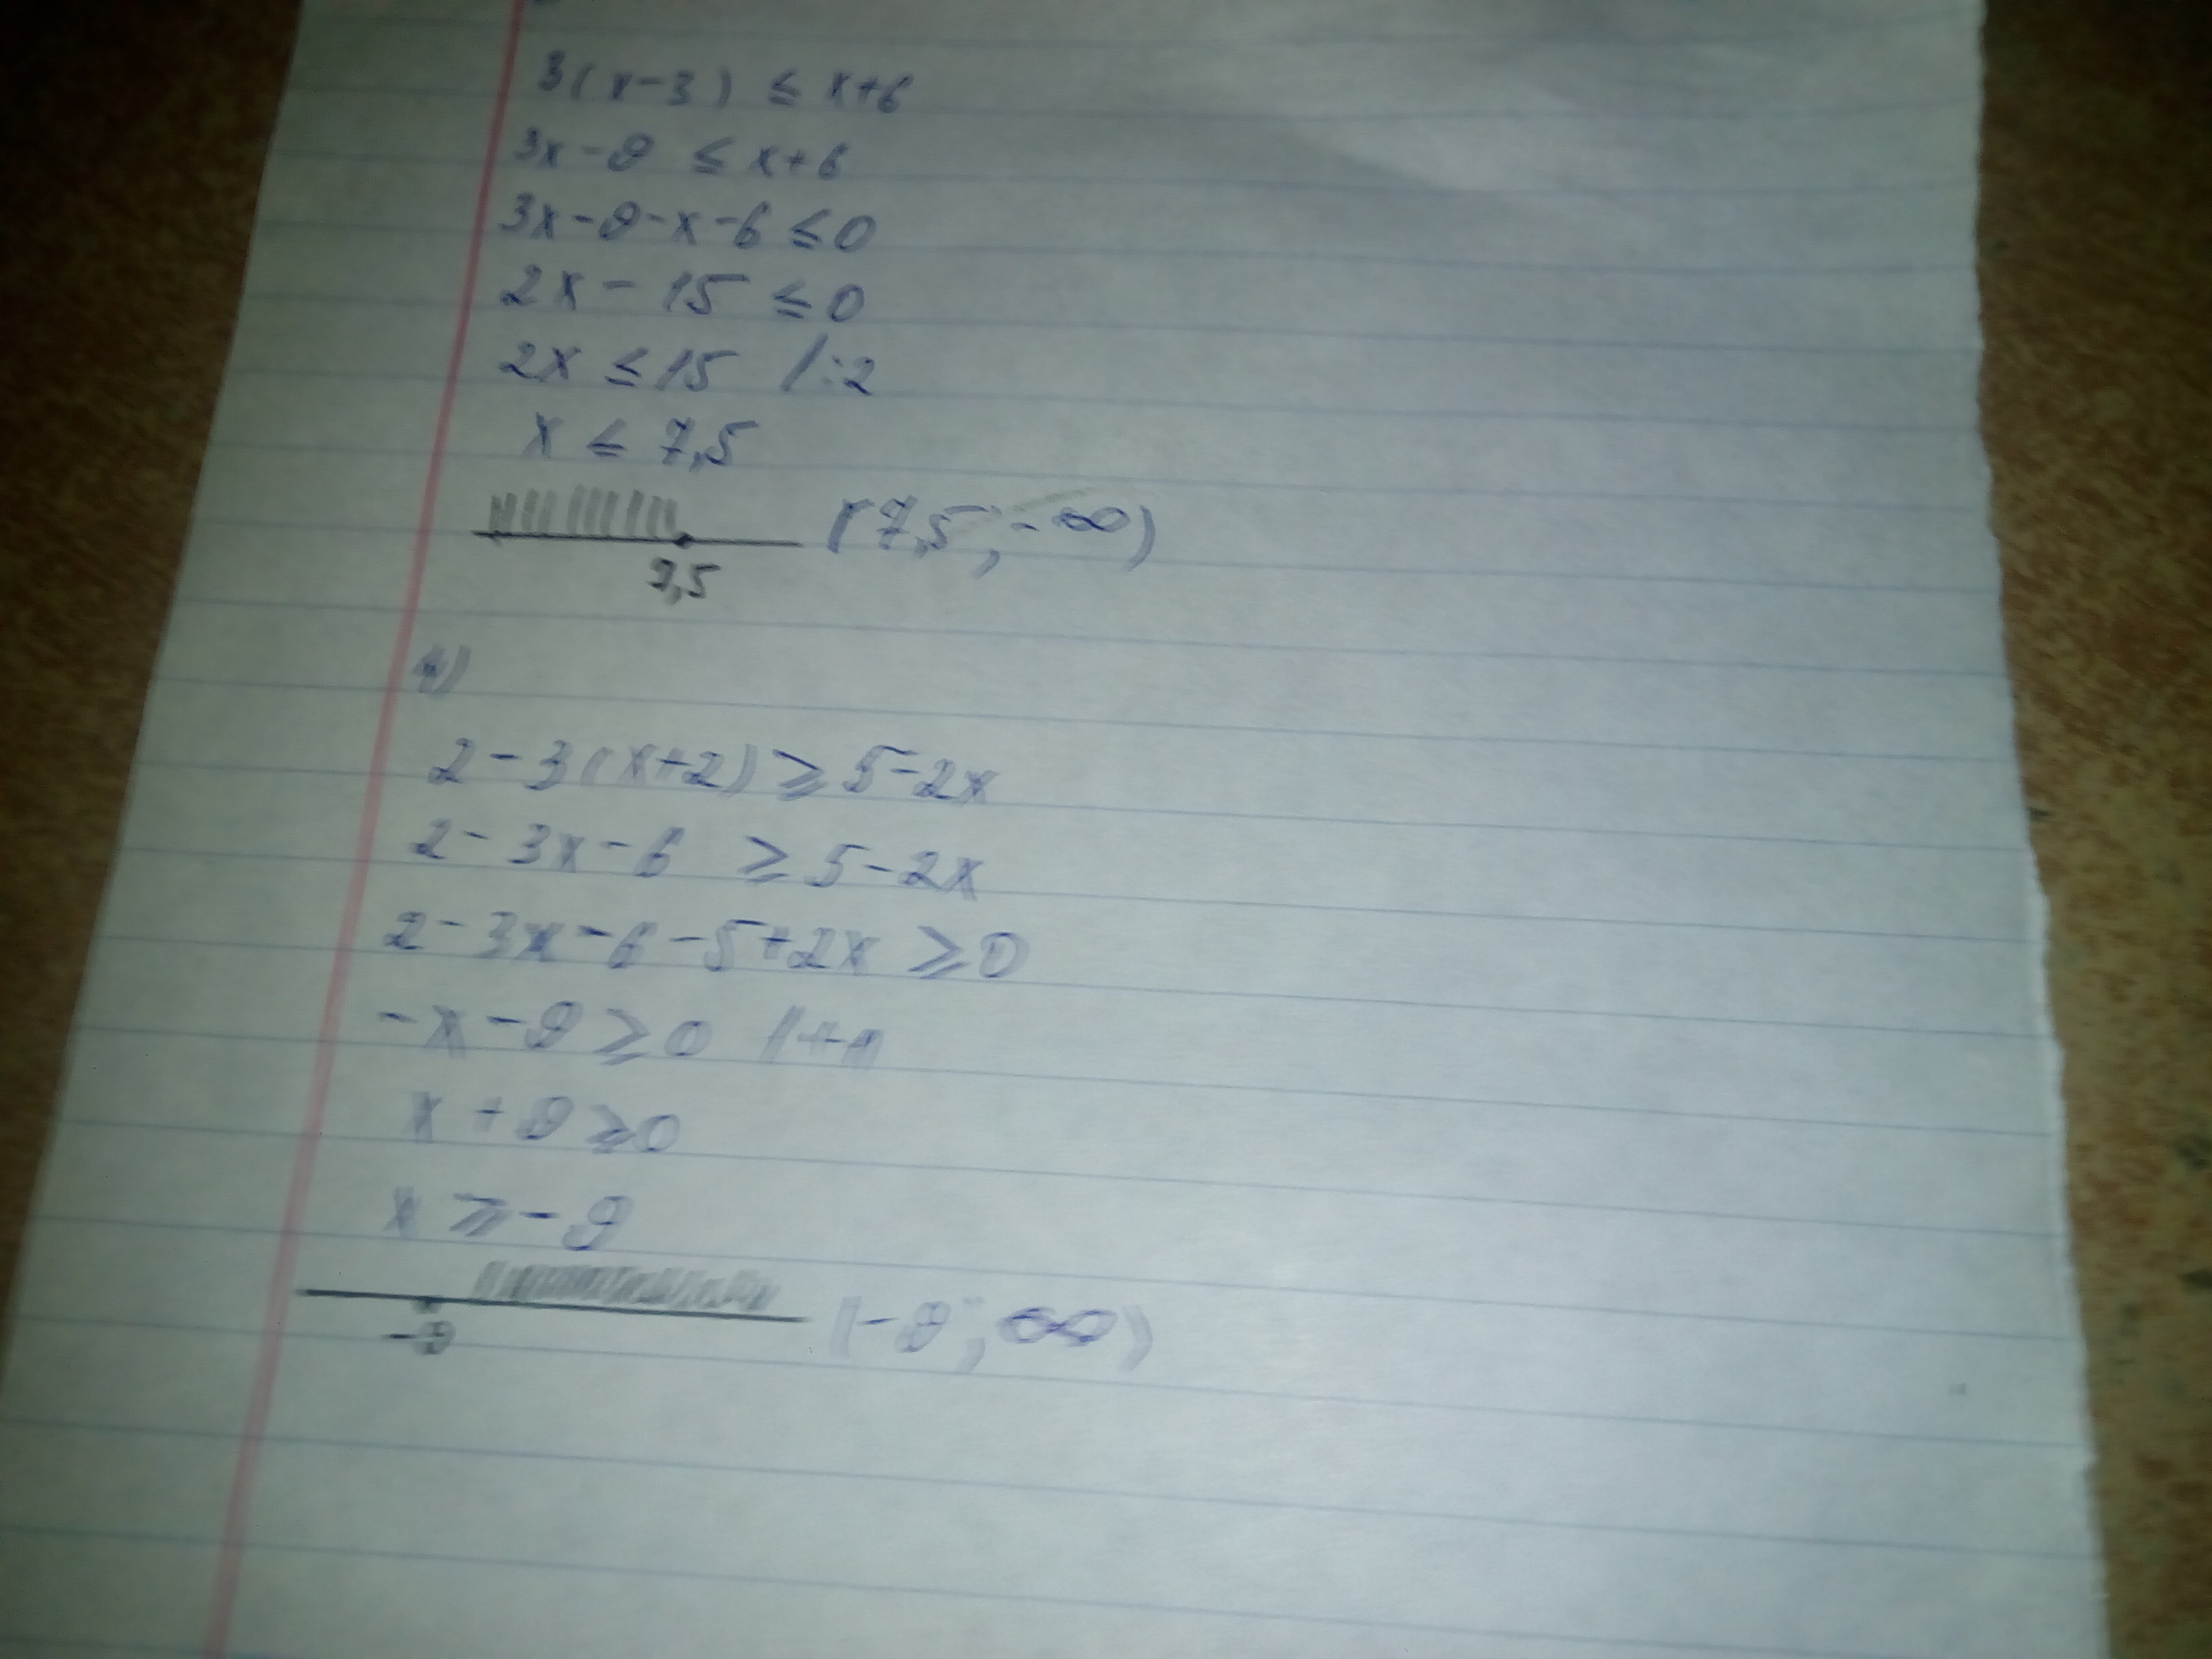 3(x-3) ≤ x+6
3x-9 ≤ x+6
3x-9-x-6 ≤0
2x - 15 ≤ 0
2x ≤ 15 /:2
x ≤ 7,5
(7,5 ; -∞)
7,5
4)
2-3(x+2) ≥ 5-2x
2-3x-6 ≥ 5-2x
2-3x-6-5+2x ≥0
-x-9 ≥ 0
x+9 ≥0
x ≥ -9
(-9 ; ∞)
-9